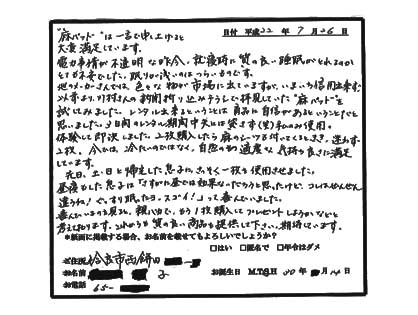 日付 平成22年7月26日
"麻パッド"は一言で申し上げると
大変満足しています。
電力事情が不透明な昨今、就寝時に質の良い睡眠がとれるのか
とても不安でした。眠りが浅いのはつらいものです。
他メーカーさんでは、色々な物が市場に出ていますが、いまいち信用出来ず
以前より、村さんの新聞折り込みチラシで拝見していた"麻パッド"を
試してみました。レンタル出来るということは商品に自信があるということだと
思いました。3日間のレンタル期間中夫には貸さず(笑)私のみ使用。
体験して即決しました。2枚購入したら麻のシーツが付いてくるとき、迷わず
2枚。今では、冷たいのではなく、自然の初適度な気持ち良さに満足
しています。
先日、土・日と帰宅した息子に、さっそく一枚を使用させました。
昼寝をした息子は「さすがに昼では効果ないだろうと思ったけど、コレはぜんぜん
違うね!ぐっすり眠れたヨ。スゴイ!」って喜んでいました。
喜んでいるのを見ると、親バカで、もう1枚購入してプレゼントしようかなどと
考えております。これからも質の良い商品を提供して下さい。期待しています。
※紙面に掲載する場合、お名前を載せてもよろしいでしょうか?
□はい □匿名で □年令はダメ
ご住所 姶良市西餅田
お名前 子 お誕生日 M.T.S.H 30年 月14日
お電話 65-